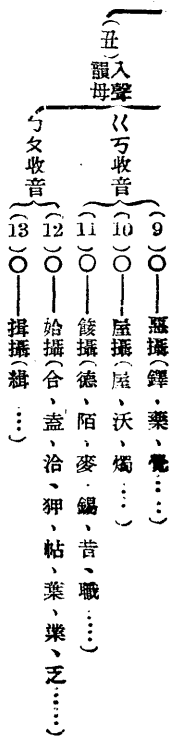 (丑)
入聲
韻母
ㄍㄎ收音
(9)○——惡攝(鐸、藥、覺……)
(10)○——屋攝(屋、沃、燭……)
(11)○——餩攝(德、陌、麥、錫、昔、職……)
ㄅㄆ收音
(12)○——姶攝(合、盍、洽、狎、帖、葉、業、乏……)
(13)○——揖攝(緝……)